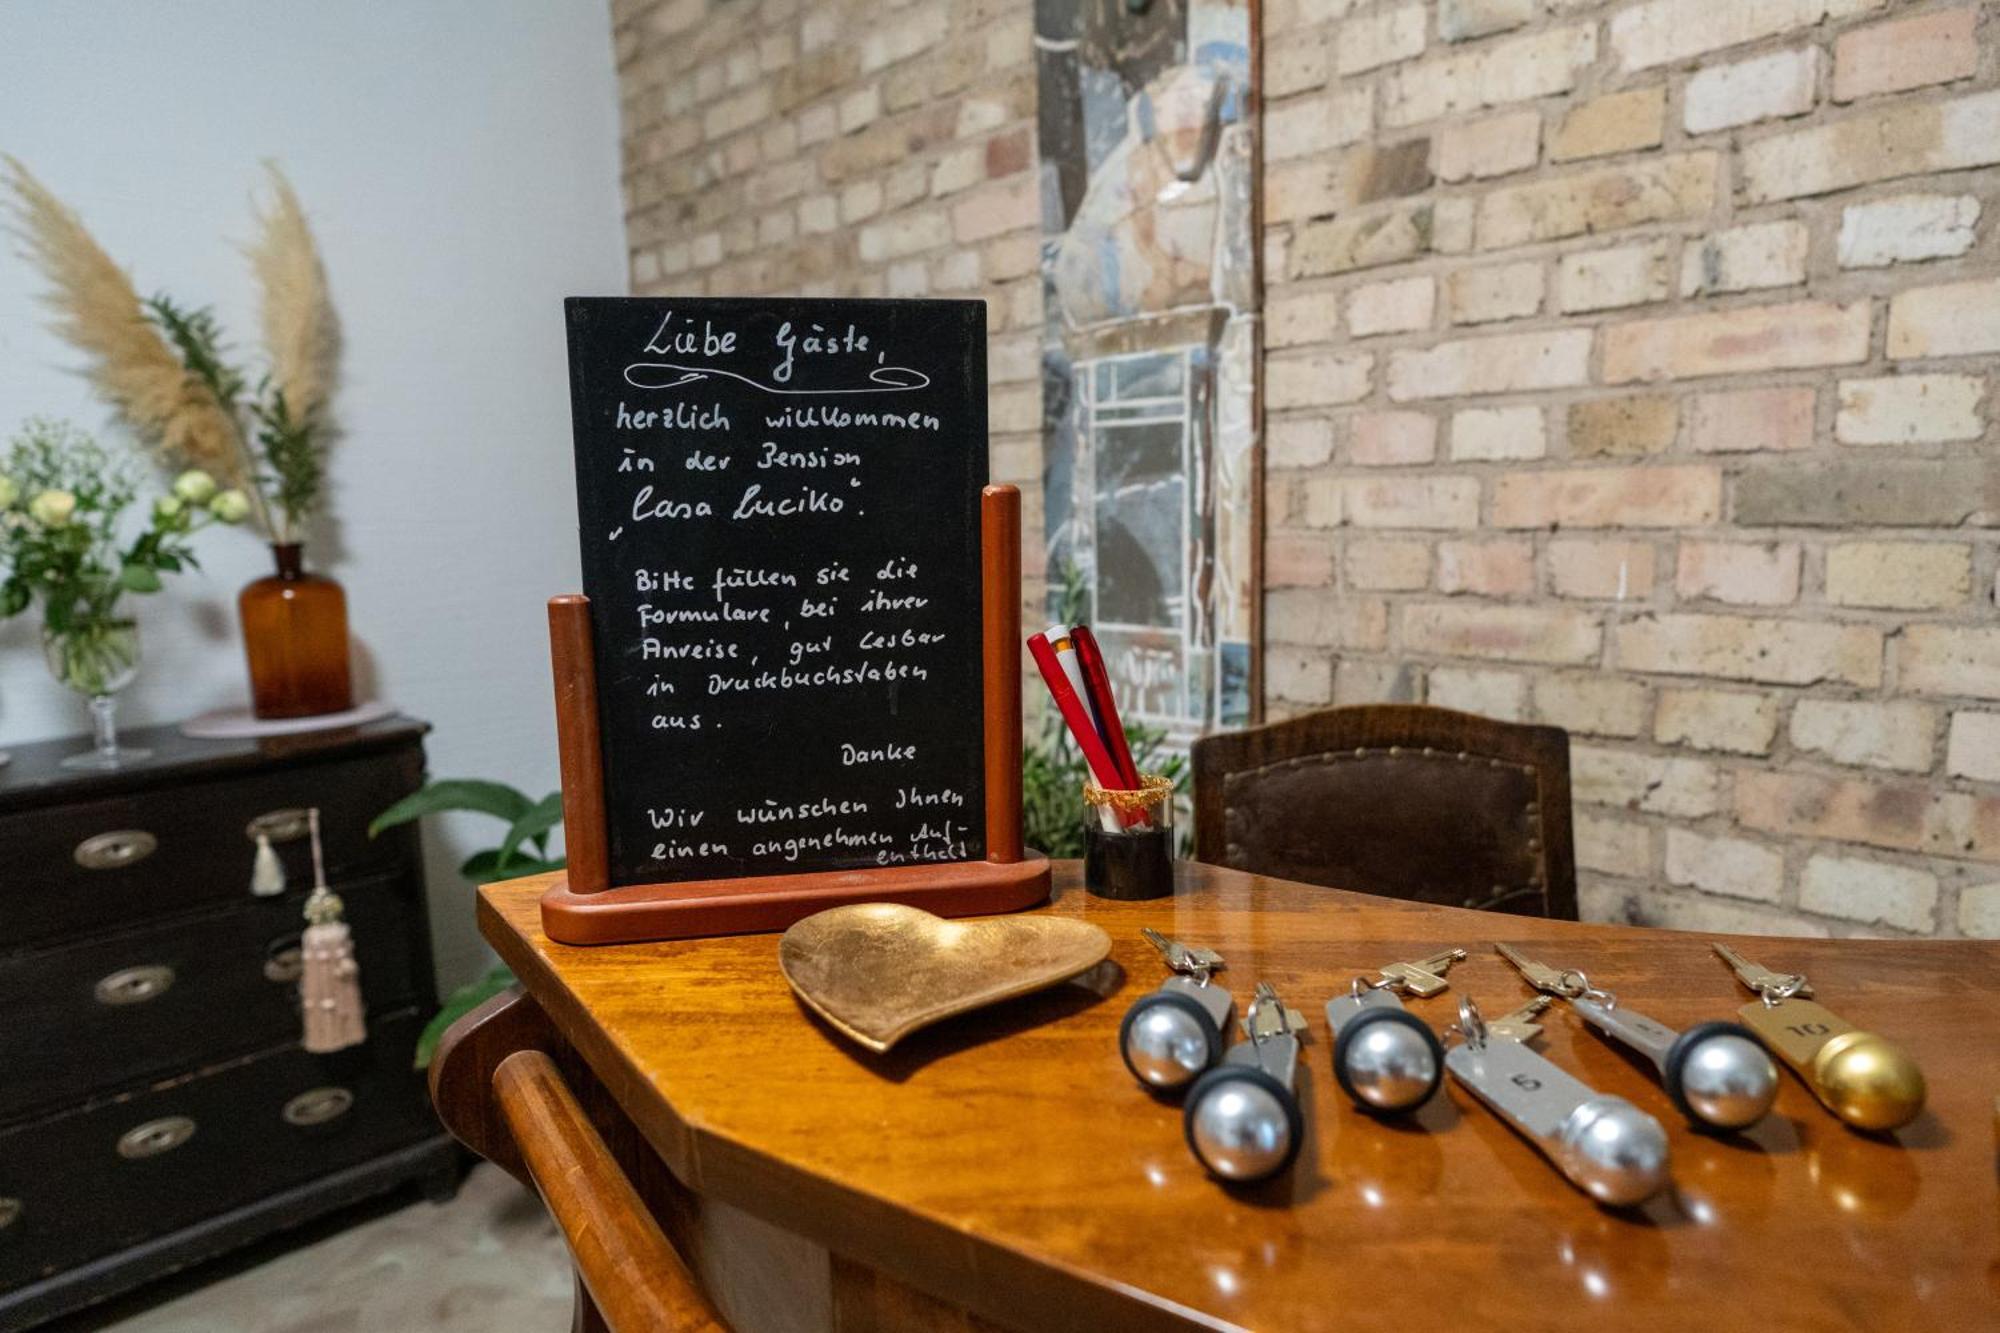 Liebe Gäste,
herzlich willkommen
in der Pension
„Casa Luciko“.
Bitte füllen sie die
Formulare, bei ihrer
Anreise, gut lesbar
in Druckbuchstaben
aus.
Danke
Wir wünschen Ihnen
einen angenehmen Auf-
enthalt
5
10